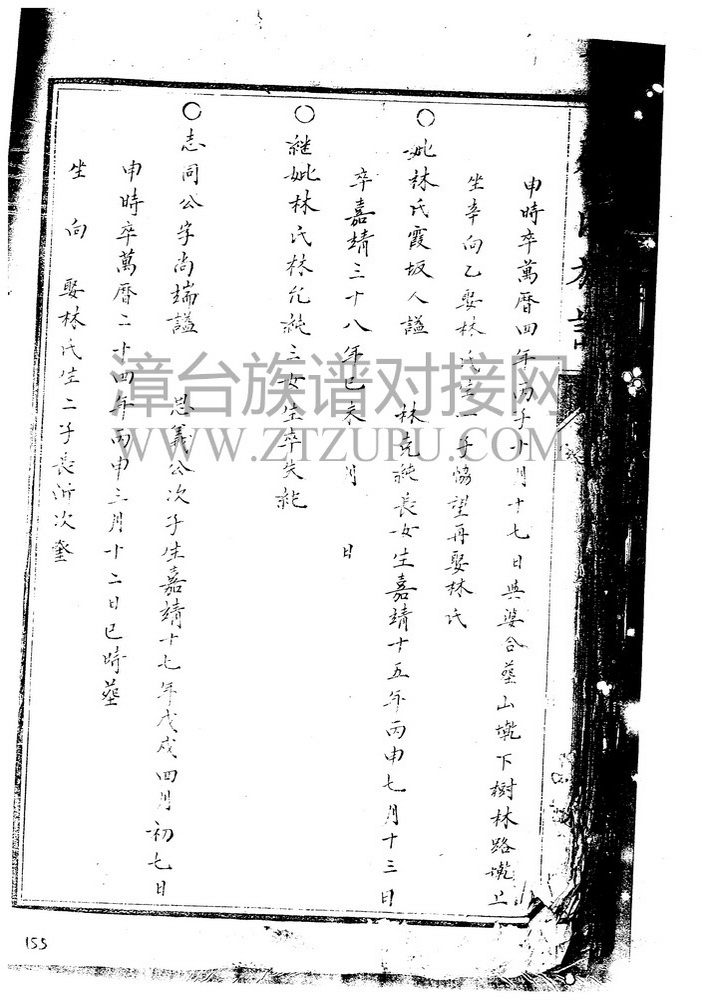 申時卒萬曆四年丙子十月十七日與婆合葬山墘下樹林路墘上
坐辛向乙娶林氏生一子恊望再娶林氏
○妣林氏霞坂人謚 林克純長女生嘉靖十五年丙申七月十三日
卒嘉靖三十八年己未 月 日
○継妣林氏林允純三女生卒失紀
○志同公字尚端謚 思義公次子生嘉靖十七年戊戌四月初七日
申時卒萬曆二十四年丙申三月十二日巳時葬
坐 向 娶林氏生二子長沂次
漳台族谱对接网
WWW.ZTZUPU.COM
155